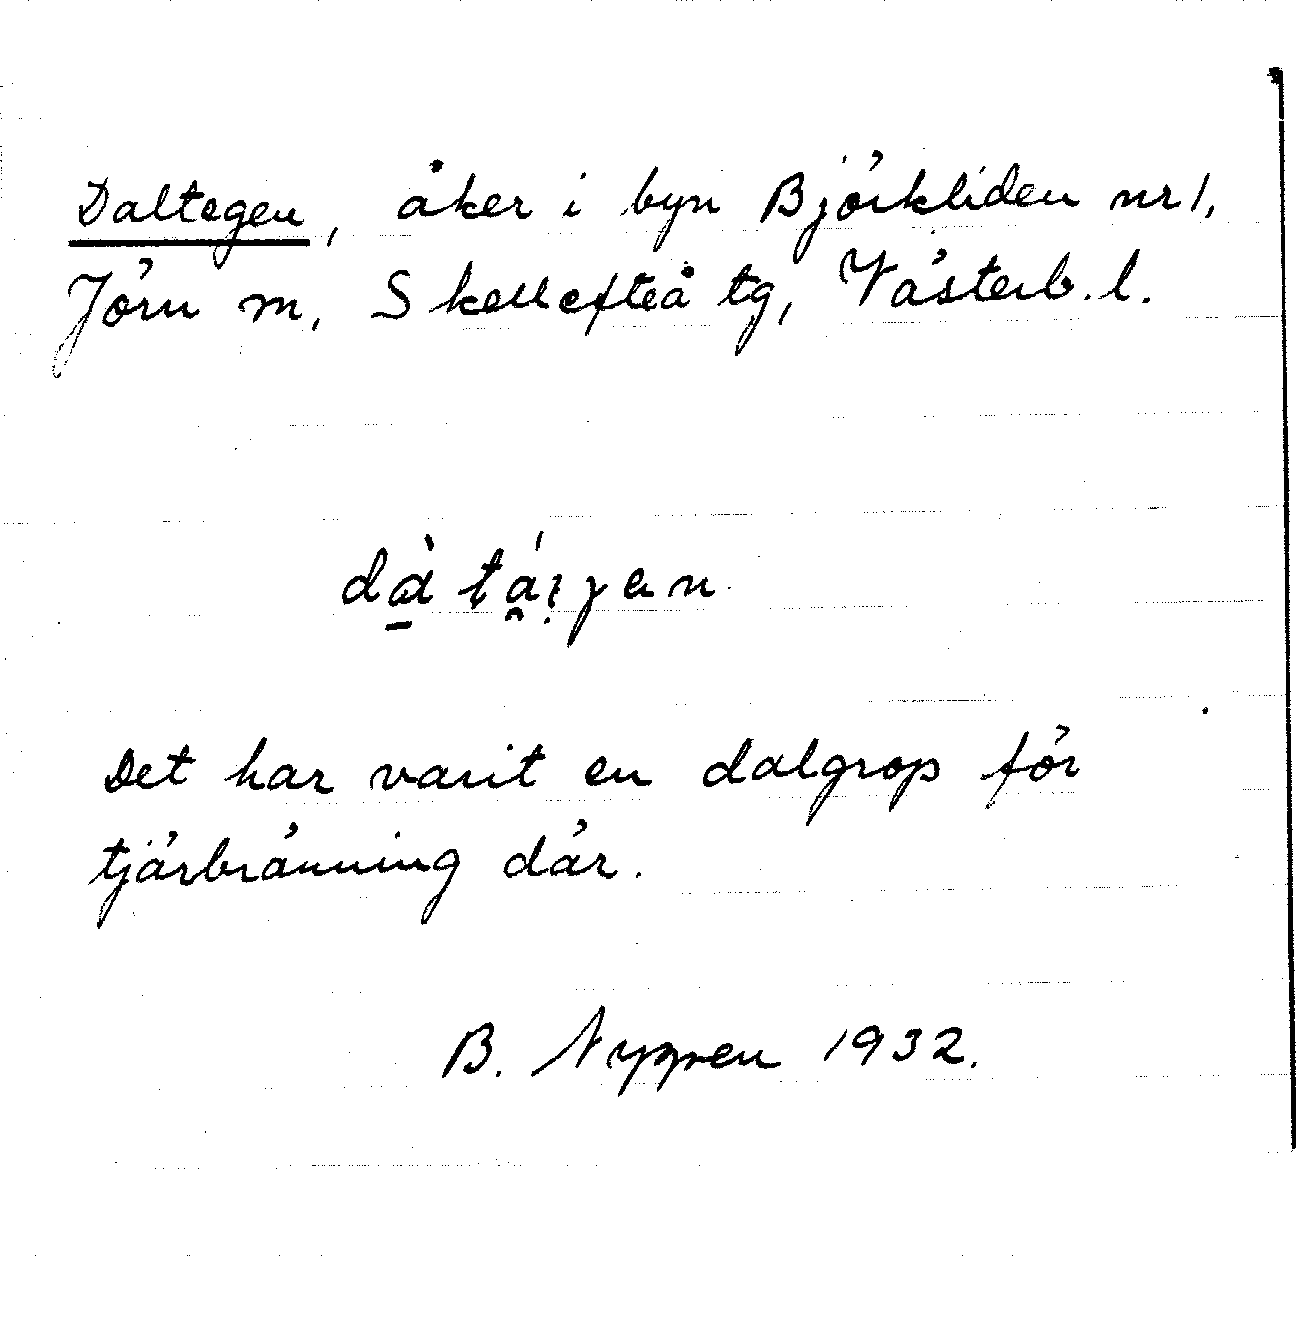 Daltegen, åker i byn Björkliden nr 1,
Jörn m, Skellefteå tg, Västerb. l.
Det har varit en dalgrop för
tjärbränning där.
B. Nygren 1932.